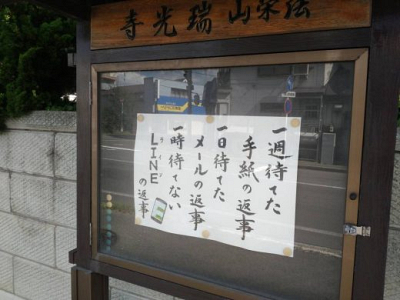 栄山瑞光寺
一週待てた
手紙の返事
一日待てた
メールの返事
一時待てない
LINEの返事
ライン